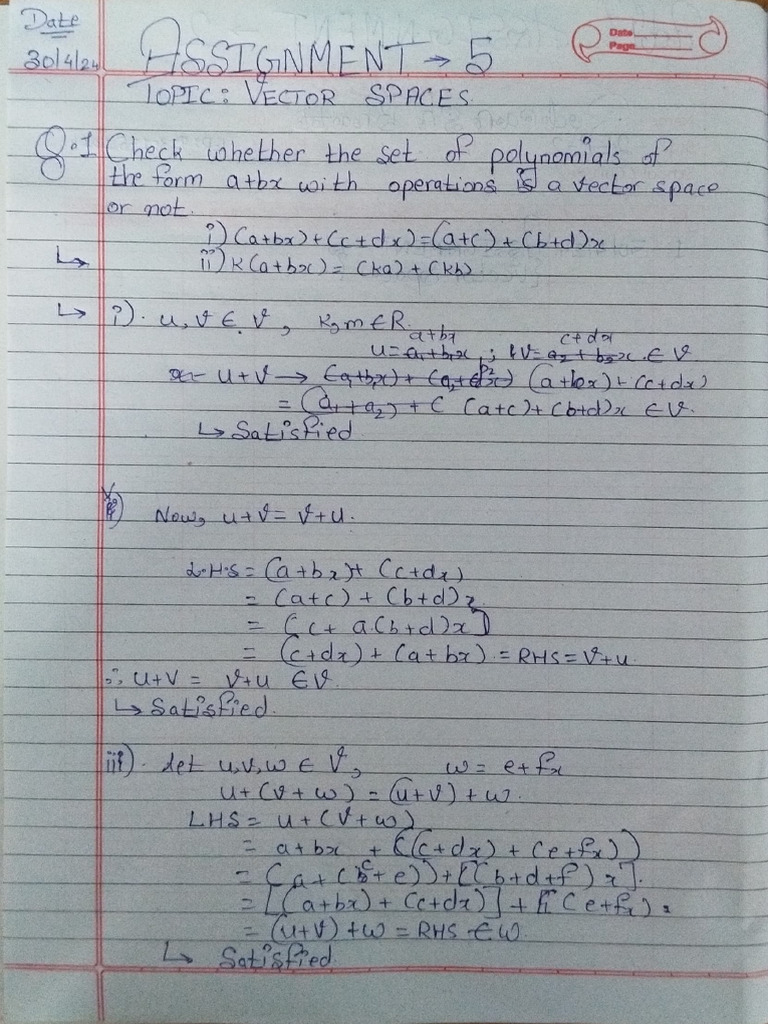 Date
30/4/24
ASSIGNMENT → 5
Date
Page
TOPIC: VECTOR SPACES.
Q.1 Check whether the set of polynomials of
the form a+bx with operations is a vector space
or not.
i) (a+bx)+(c+dx)=(a+c)+(b+d)x
↳ ii) k(a+bx)= (ka)+(kb)
↳ i). u, v ∈ V, k, m ∈ R.
a+bx c+dx
u= a₁+b₁x ; v= a₂+b₂x ∈ V
u+v → (a+bx)+(c+dx)
= (a₁+a₂)+( (a+c)+(b+d)x ∈ V.
↳ Satisfied
Now, u+v= v+u.
L.H.S = (a+bx)+ (c+dx)
= (a+c) + (b+d)x
= [c+ a(b+d)x]
= (c+dx) + (a+bx) = RHS = v+u
∴ u+v = v+u ∈ V.
↳ Satisfied.
iii). let u,v,w ∈ V, w = e+fx
u+(v+w) = (u+v)+w.
LHS= u+(v+w)
= a+bx + ((c+dx) + (e+fx))
= (a+(c+e))+[(b+d+f)x].
= [(a+bx) + (c+dx)] + [(e+fx)
= (u+v) +w = RHS ∈ W.
↳ Satisfied.